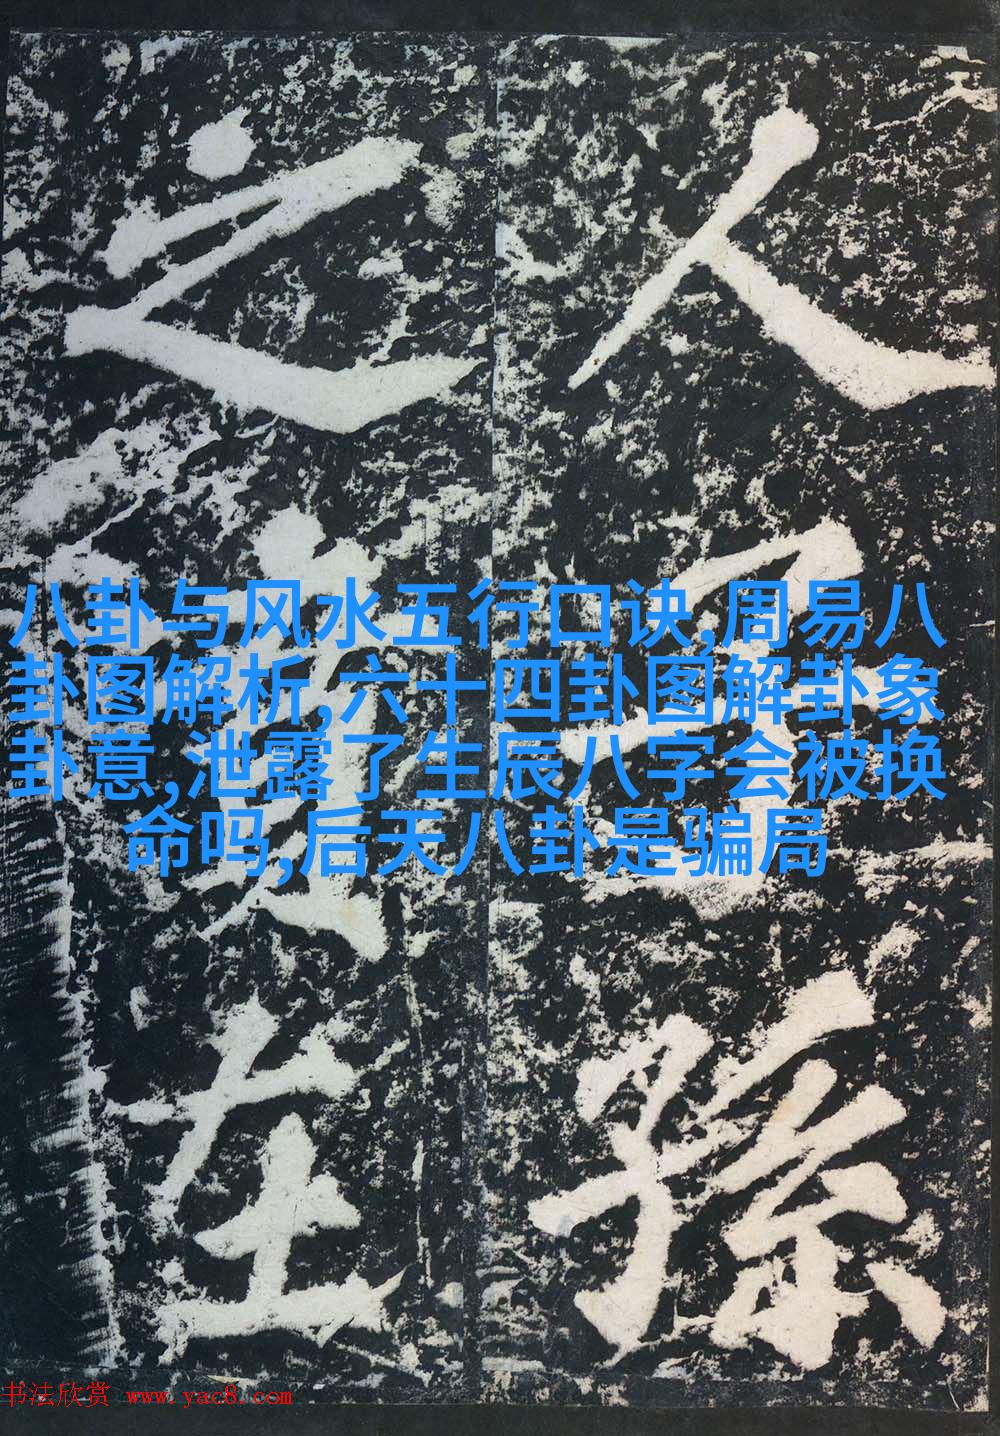 人孫
之在
八卦与风水五行口诀,周易八
卦图解析,六十四卦图解卦象
卦意,泄露了生辰八字会被换
命吗,后天八卦是骗局
书法欣赏 www.yac8.com